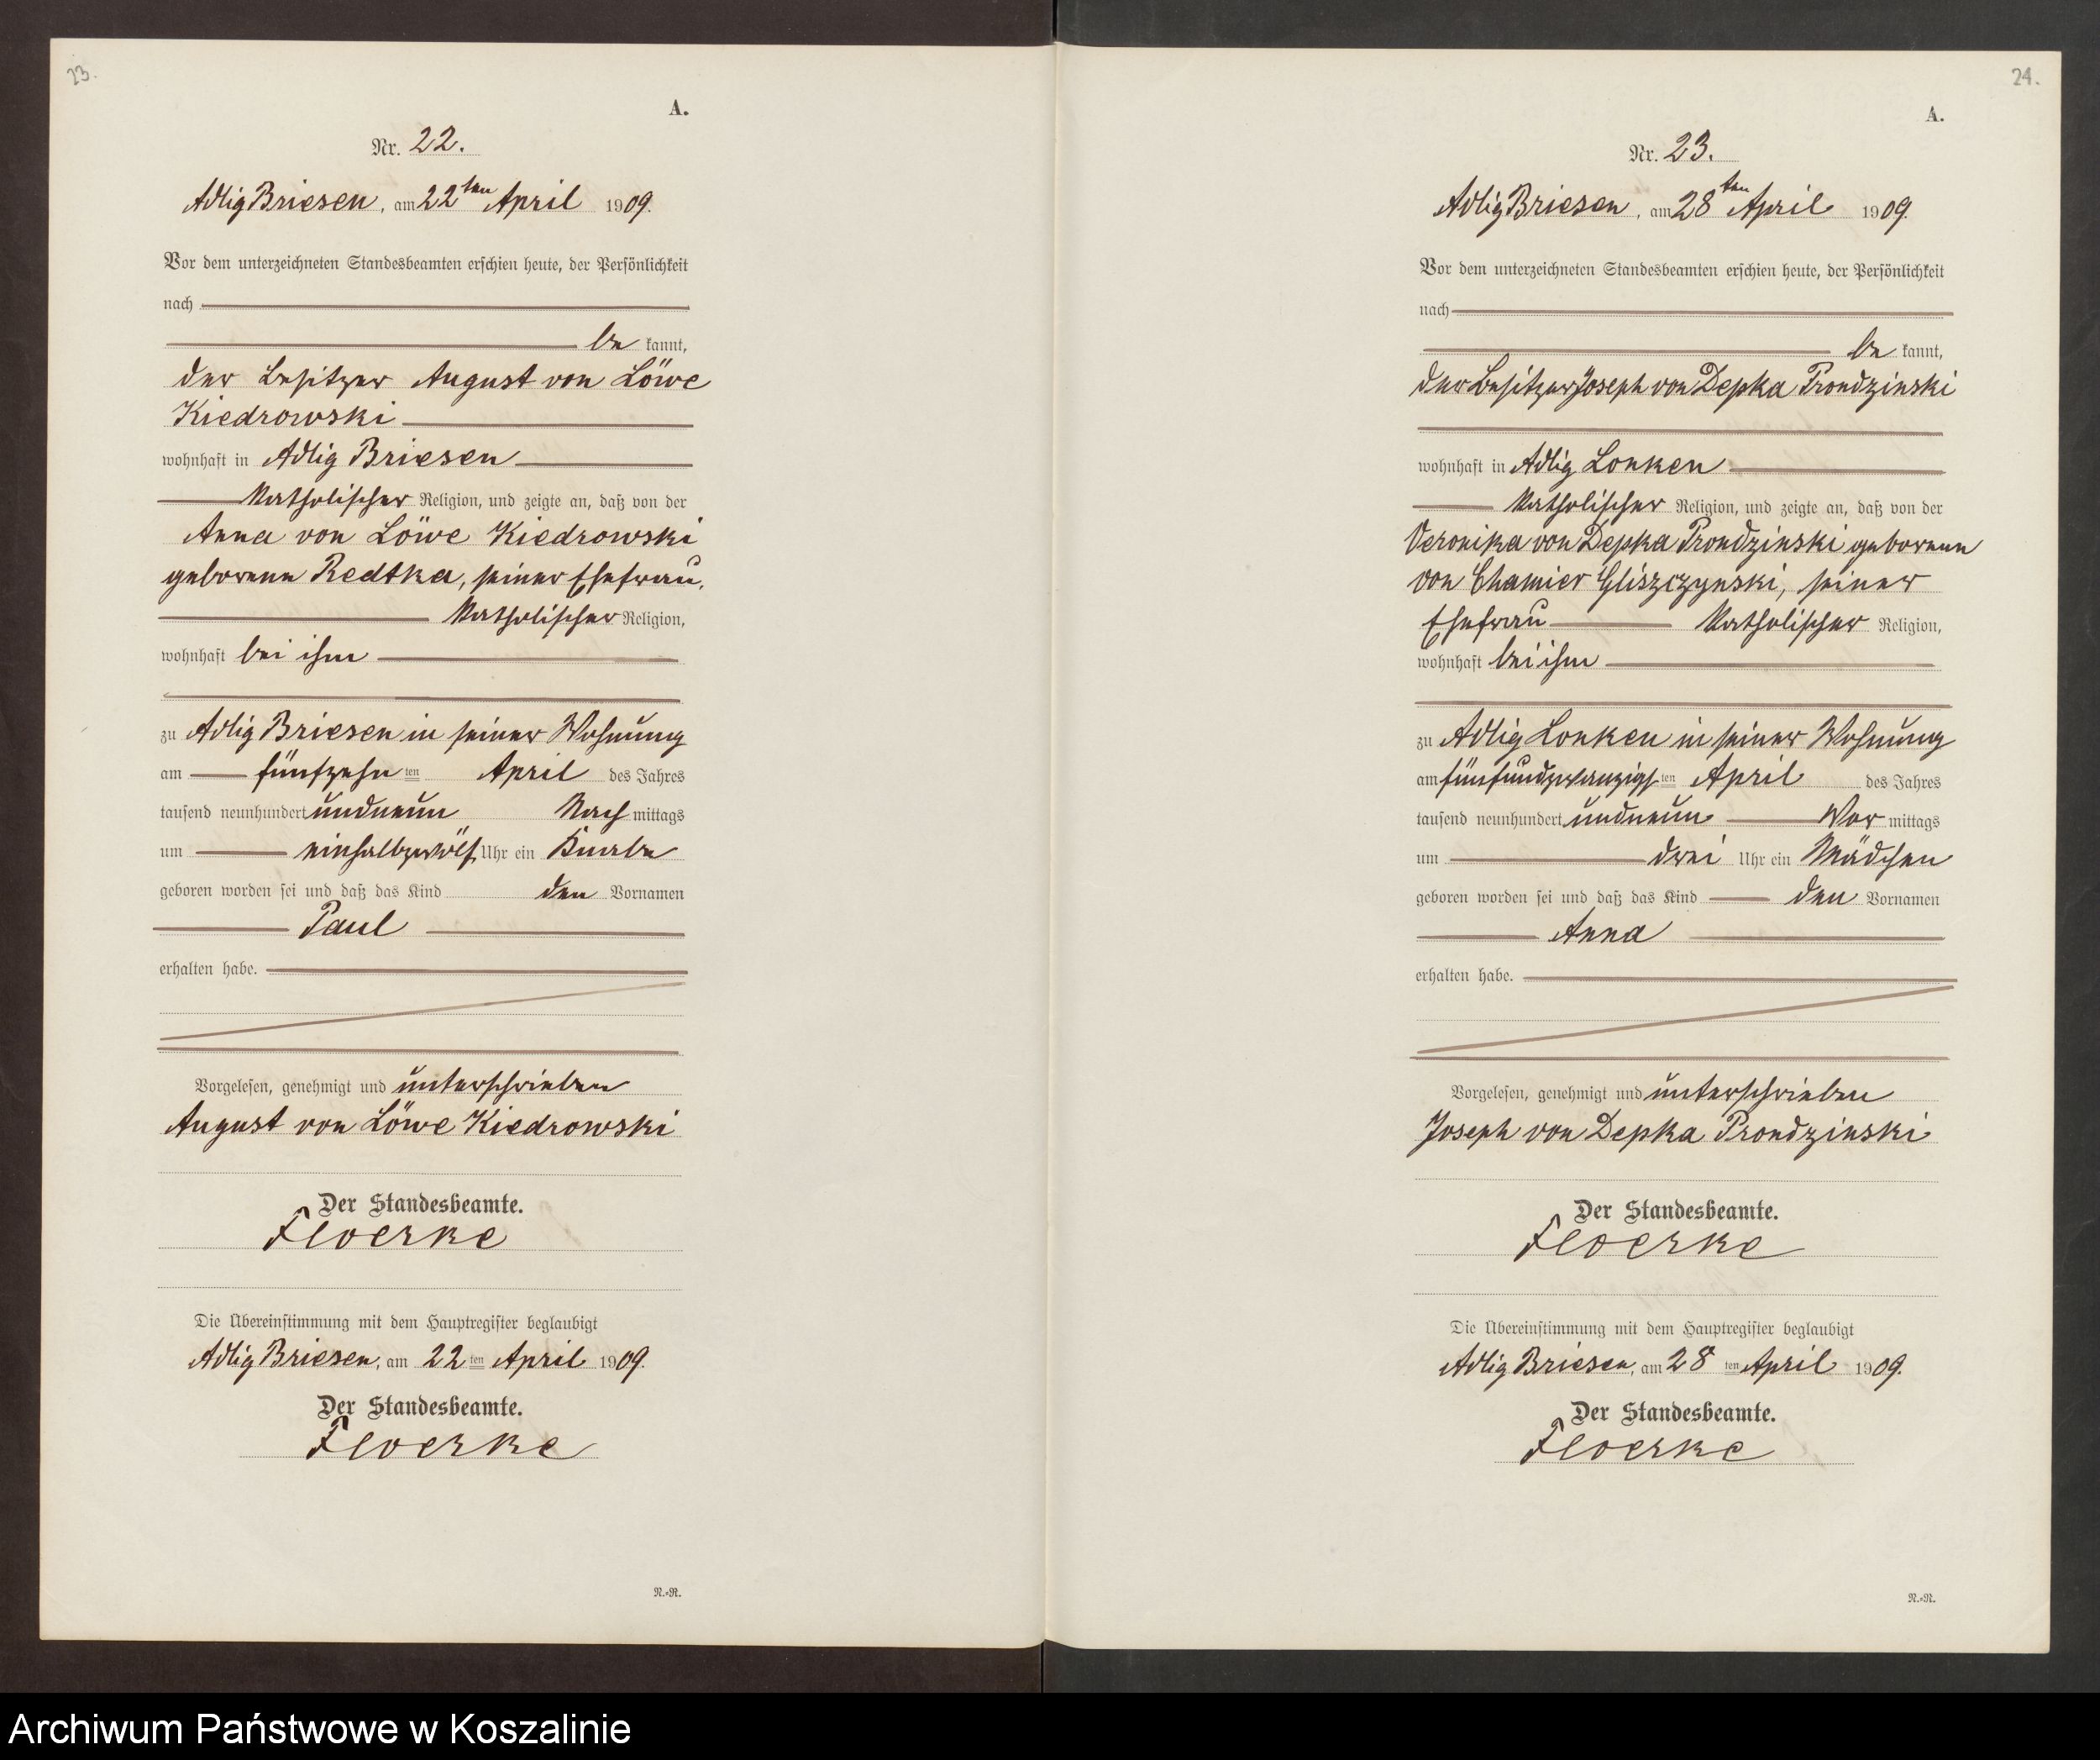 23.
A.
Nr. 22.
Adlig Briesen, am 22ten April 1909.
Vor dem unterzeichneten Standesbeamten erschien heute, der Persönlichkeit
nach
be kannt,
der Besitzer August von Löwe
Kiedrowski
wohnhaft in Adlig Briesen
katholischer Religion, und zeigte an, daß von der
Anna von Löwe Kiedrowski
geborene Redtka, seiner Ehefrau,
katholischer Religion,
wohnhaft bei ihm
zu Adlig Briesen in seiner Wohnung
am fünfzehn ten April des Jahres
tausend neunhundert undneun Nach mittags
um einhalbzwölf Uhr ein Knabe
geboren worden sei und daß das Kind den Vornamen
Paul
erhalten habe.
Vorgelesen, genehmigt und unterschrieben
August von Löwe Kiedrowski
Der Standesbeamte.
Floerke
Die Übereinstimmung mit dem Hauptregister beglaubigt
Adlig Briesen, am 22 ten April 1909.
Der Standesbeamte.
Floerke
N.=N.
24.
A.
Nr. 23.
Adlig Briesen, am 28ten April 1909.
Vor dem unterzeichneten Standesbeamten erschien heute, der Persönlichkeit
nach
be kannt,
der Besitzer Joseph von Depka Prondzinski
wohnhaft in Adlig Lonken
katholischer Religion, und zeigte an, daß von der
Veronika von Depka Prondzinski geborene
von Chamier Gliszczynski, seiner
Ehefrau katholischer Religion,
wohnhaft bei ihm
zu Adlig Lonken in seiner Wohnung
am fünfundzwanzigs ten April des Jahres
tausend neunhundert undneun Vor mittags
um drei Uhr ein Mädchen
geboren worden sei und daß das Kind den Vornamen
Anna
erhalten habe.
Vorgelesen, genehmigt und unterschrieben
Joseph von Depka Prondzinski
Der Standesbeamte.
Floerke
Die Übereinstimmung mit dem Hauptregister beglaubigt
Adlig Briesen, am 28 ten April 1909.
Der Standesbeamte.
Floerke
N.=N.
Archiwum Państwowe w Koszalinie